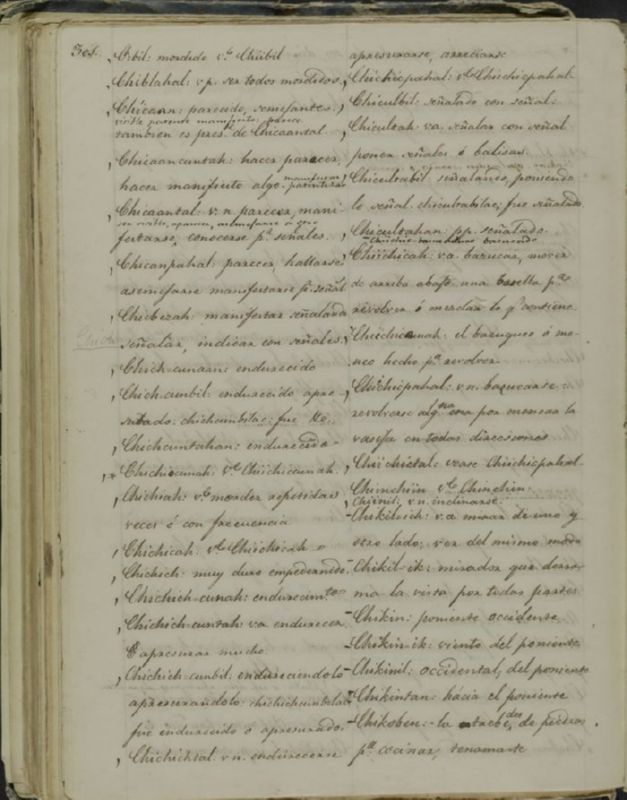 301.
Chibil: mordido v.to Chiibil
Chiblahal: v.p. ser todos mordidos.
Chicaan: parecido, semejante.
visible patente manifiesto: parece
tambien es pres.te de Chicaantal.
Chicaancuntah: hacer parecer,
manifestar,
hacer manifiesto algo.
Chicaantal: v.n. parecer, mani
ser visible, aparecer, manifestarse
festarse, conocerse p.r señales.
Chicanpahal: parecer, hallarse
asemejarse manifestarse p.r señal
Chicbezah: manifestar señalada
señalar, indicar con señales.
Chich-cunaan: endurecido
Chich-cunbil: endurecido apre
surado: chichcunbilac: fue
Chichcuntahan: endurecido
Chichcunah: v.to Chiichicunah.
Chichiah: v.a morder repetidas
veces ó con frecuencia
Chichicah v.to Chiichicah
Chichich: muy duro empedernido.
Chichich-cunah: endurecim.to
Chichich-cuntah va endurecer
apresurar mucho
Chichich-cunbil: endureciendolo
apresurandolo: chichichcunbilac
fue endurecido ó apresurado
Chichichtal. v.n. endurecerse
apresurarse, arreciarse
Chichicpahal: v.to Chiichicpahal.
Chicilbil: señalado con señal.
Chicultah: v.a. señalar con señal
poner señales ó balisas.
Chicultabil señalando, poniendo
le señal. chicultabilac; fue señalado
Chicultahan: pp. señalado.
Chiichicah: v.a. bazucar, mover
de arriba abajo una basija p.a
revolver ó mezclar lo q.e contiene
Chiichicunah: el bazuqueo ó me-
neo hecho p.a revolver
Chiichicpahal: v.n. bazucarse
revolverse alg.na cosa por menear la
vasija en todas direcciones
Chiichictal: verse Chiichicpahal.
Chiinchiin v.to Chinchin.
Chiinil, v.n. inclinarse.
Chikilich: v.a mirar de uno y
otro lado; ver del mismo modo
Chikil-ik: mirador que derra-
ma la vista por todas partes
Chikin: poniente occidente
Chikin-ik: viento del poniente
Chikinil: occidental, del poniente
Chikintan: hacia el poniente
Chikoben: la de piedras
p.a cocinar,